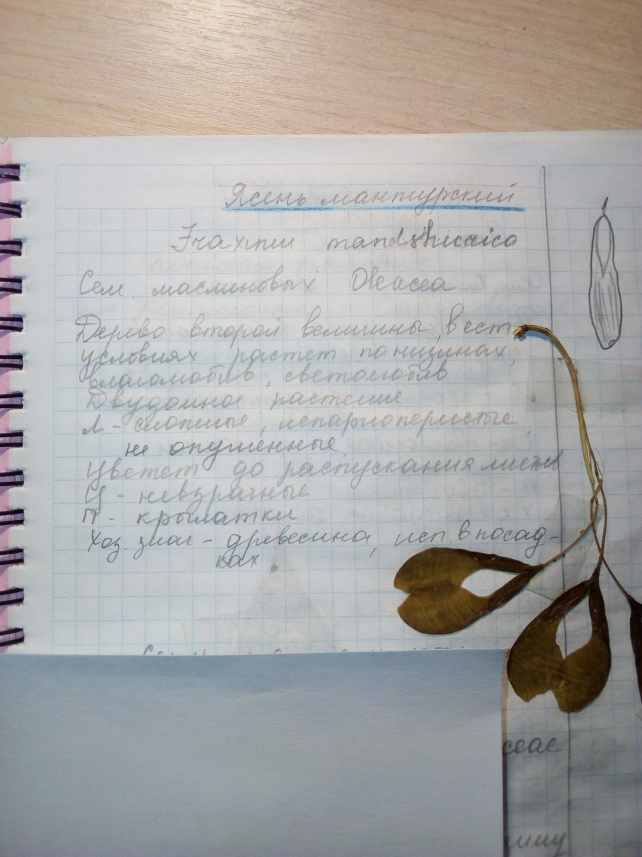 Ясень манчурский
Fraxinus mandshurica
Сем маслиновых Oleacea
Дерево второй величины, в ест.
условиях растет по низинах,
влаголюбив, светолюбив
Двудомное растение
Л - сложные, непарноперистые
не опушенные
Цветет до распускания листьев
Ц - невзрачные
П - крылатки
Хоз. знач - древесина, исп. в посад-
ках.
ceae